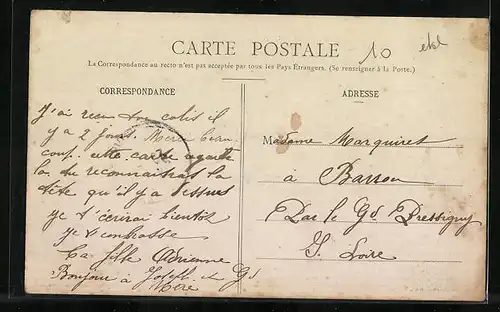 CARTE POSTALE
10
La Correspondance au recto n'est pas acceptée par tous les Pays Étrangers. (Se renseigner à la Poste.)
CORRESPONDANCE
J'ai reçu ton colis il
y a 2 jours Merci beau
coup. cette carte
tu reconnaitras la
tête qu'il y a dessus
je t'écrirai bientôt
je t'embrasse
Ta fille Adrienne
Bonjour à Joseph et Gd
Mère
ADRESSE
Madame Marquiret
à Barrou
Par le Gd Pressigny
I. Loire